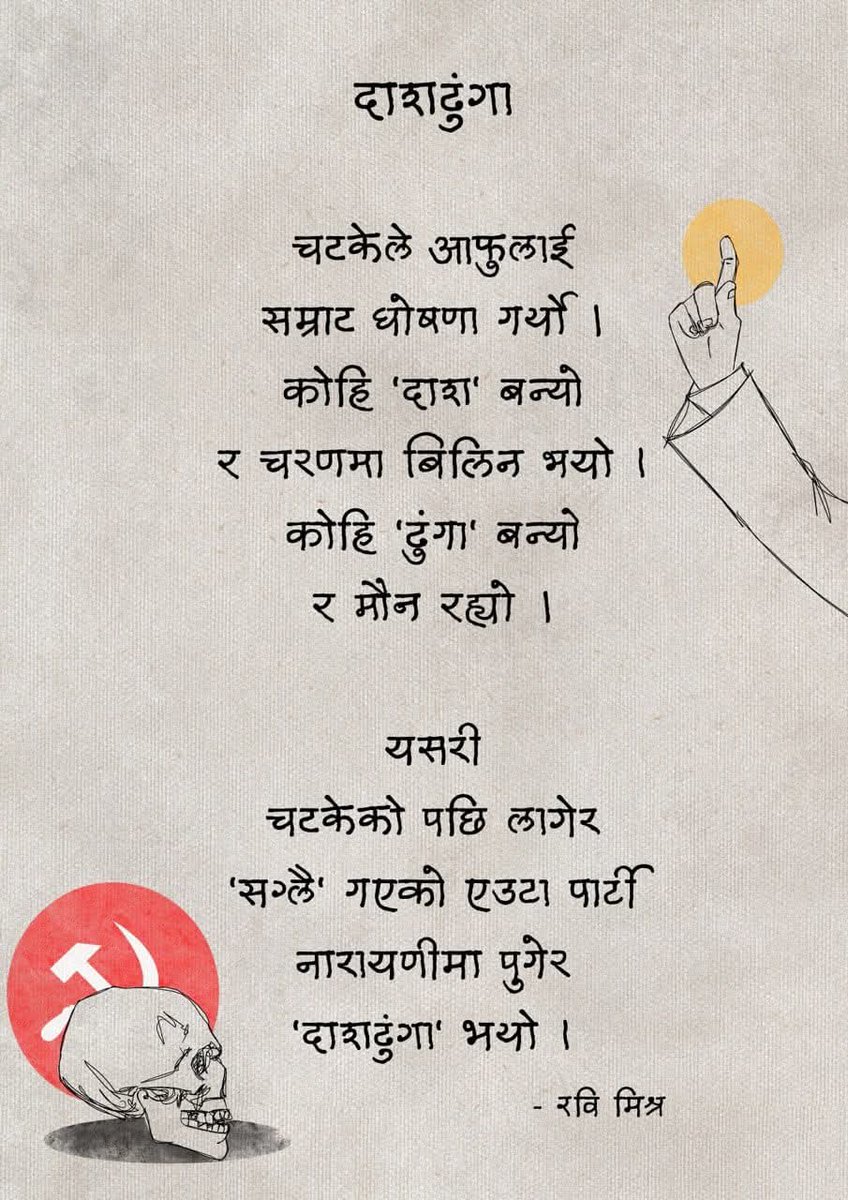 दाशढुंगा
चटकेले आफुलाई
सम्राट घोषणा गर्यो ।
कोहि 'दाश' बन्यो
र चरणमा बिलिन भयो ।
कोहि 'ढुंगा' बन्यो
र मौन रह्यो ।
यसरी
चटकेको पछि लागेर
'सग्लै' गएको एउटा पार्टी
नारायणीमा पुगेर
'दाशढुंगा' भयो ।
- रवि मिश्र